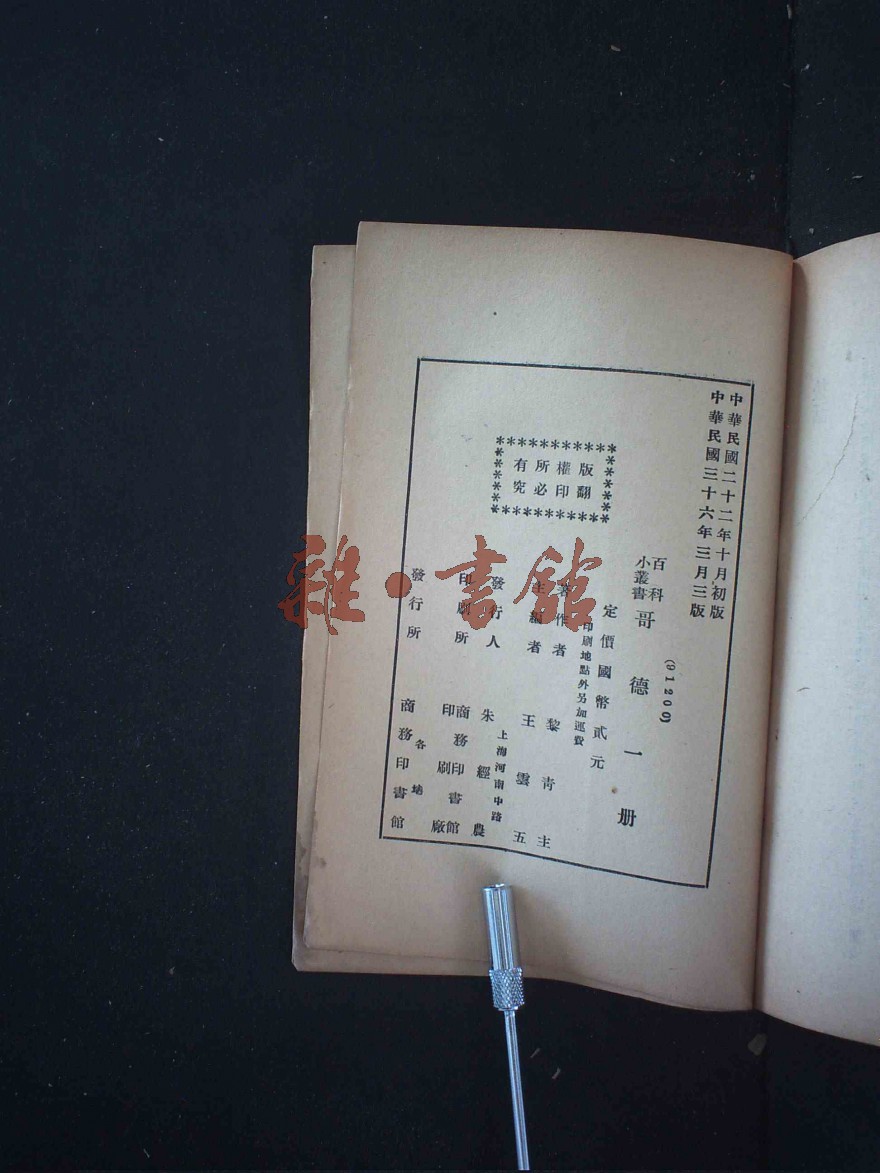 中華民國二十二年十月初版
中華民國三十六年三月三版
(91200)
百科小叢書
哥德一册
定價國幣貳元
印刷地點外另加運費
著作者 黎青主
主編者 王雲五
上海河南中路
發行人 朱經農
印刷所 商務印書館印刷廠
發行所 各地商務印書館
版權所有
翻印必究
雜·書館